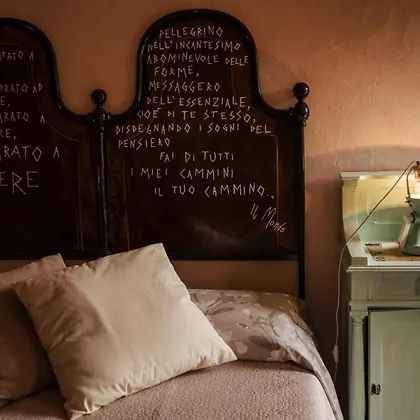 ARATO A
ARATO AD
ARE,
ARATO A
ERE
PELLEGRINO
NELL'INCANTESIMO
ABOMINEVOLE DELLE
FORME,
MESSAGGERO
DELL'ESSENZIALE,
CIOÈ DI TE STESSO,
DISDEGNANDO I SOGNI DEL
PENSIERO
FAI DI TUTTI
I MIEI CAMMINI
IL TUO CAMMINO...
IL MONDO